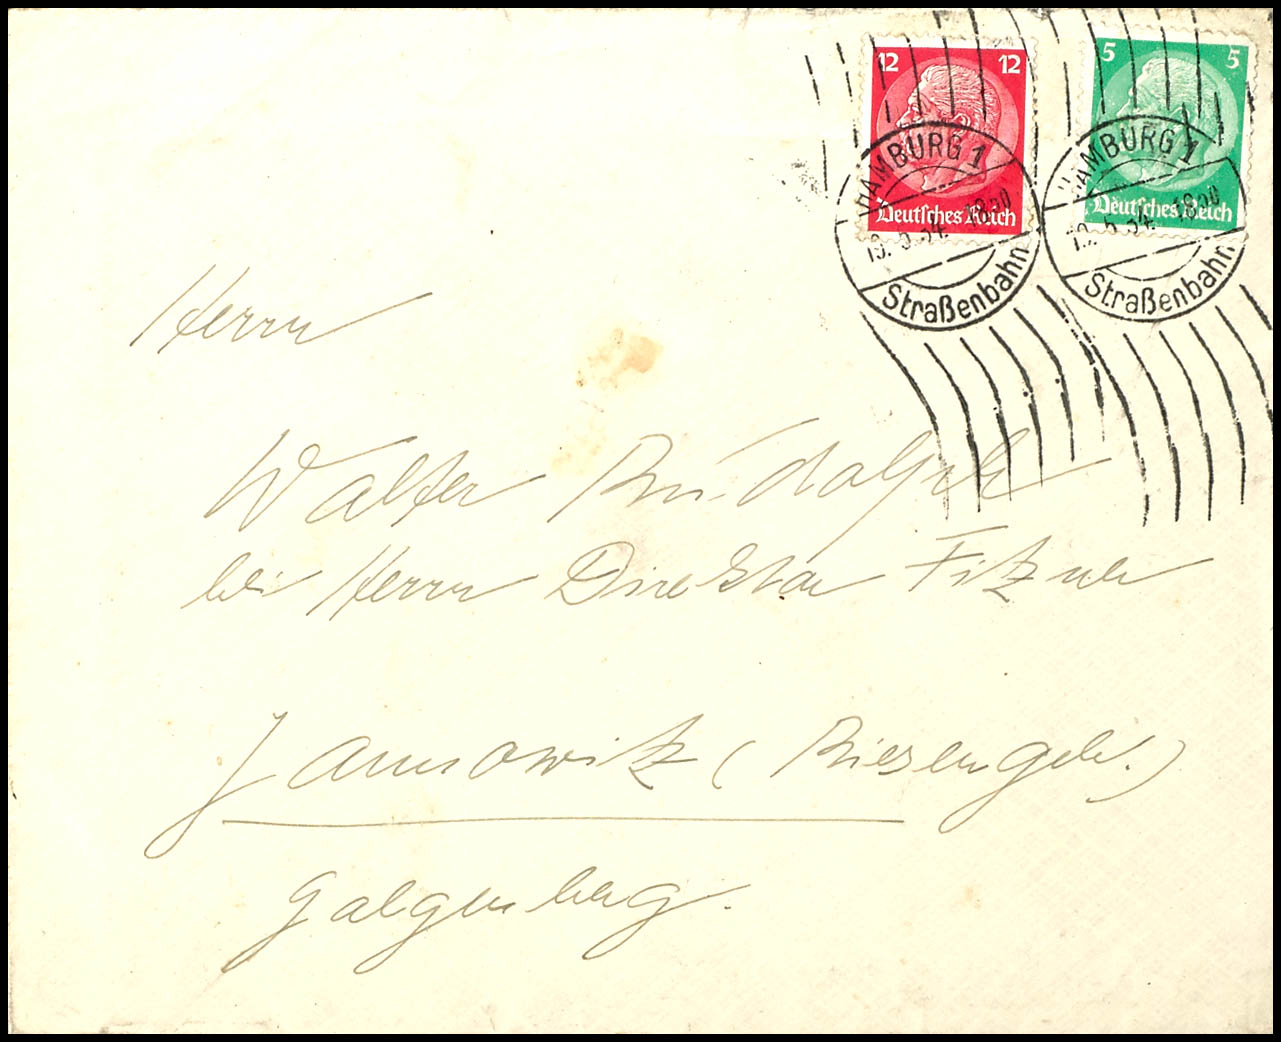 12 12
Deutsches Reich
5 5
Deutsches Reich
HAMBURG 1
5.34. 18
Straßenbahn
HAMBURG 1
5.34. 18
Straßenbahn
Herrn
Walter
bei Herrn Direktor Fitzner
Jannowitz (Riesengeb.)
Galgenberg.